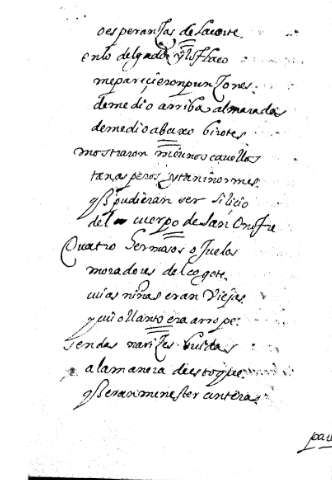 o esperanzas de la corte
en lo delgado y lo flaco
me pareçieron punzones
de medio arriba almaradas
de medio abaxo birotes
mostraron me unos cauellos
tan asperos y tan inormes
q̃ pudieran ser silicio
del cuerpo de san Onofre
Quatro sermosos ojuelos
moradores del cogote
cuias niñas eran Viejas
y cuio llanto era arrope
sendas narizes buidas
a la manera de estoque
q̃ eran menester conteras